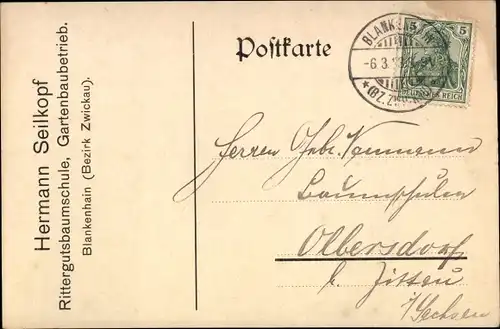 Hermann Seilkopf
Rittergutsbaumschule, Gartenbaubetrieb.
Blankenhain (Bezirk Zwickau).
Postkarte
BLANKENHAIN
-6.3.
*(BZ. ZWICKAU)*
5 5
DEUTSCHES REICH
Herren Gebr. Neumann
Baumschulen
Olbersdorf
b. Zittau
i/Sachsen